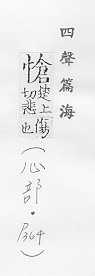 四聲篇海
愴楚上切傷悲也
(心部·P364)